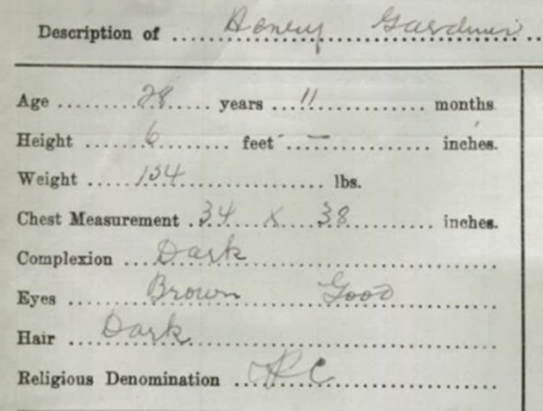 Description of Henry Gardiner
Age 28 years 11 months
Height 6 feet — inches.
Weight 154 lbs.
Chest Measurement 34 x 38 inches.
Complexion Dark
Eyes Brown Good
Hair Dark
Religious Denomination RC